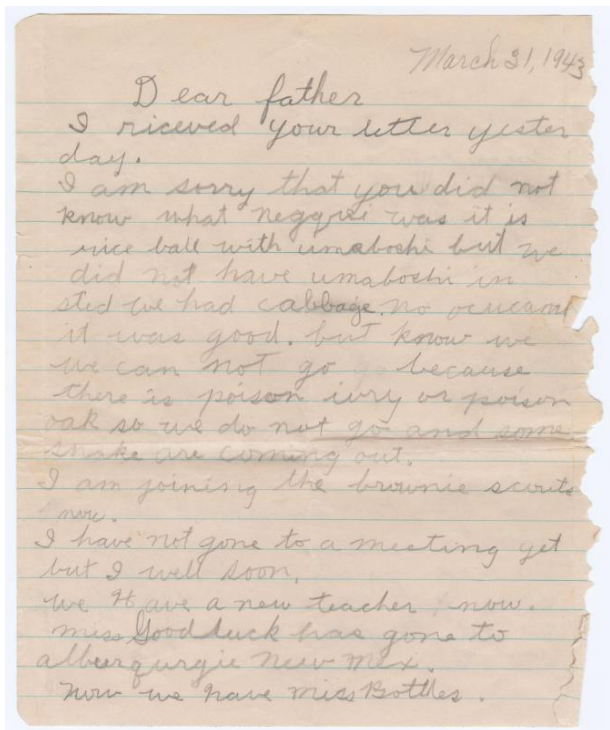 March 31, 1943
Dear father
I riceved your letter yester
day.
I am sorry that you did not
know what neggri was it is
rice ball with umaboshi but we
did not have umaboshi in
sted we had cabbage. no
it was good. but know we
we can not go because
there is poison ivry or poison
oak so we do not go and some
snake are coming out.
I am joining the brownie scouts
now.
I have not gone to a meeting yet
but I well soon.
we Have a new teacher now.
miss Goodluck has gone to
alburqurgie New Mex.
Now we have miss Bottles.